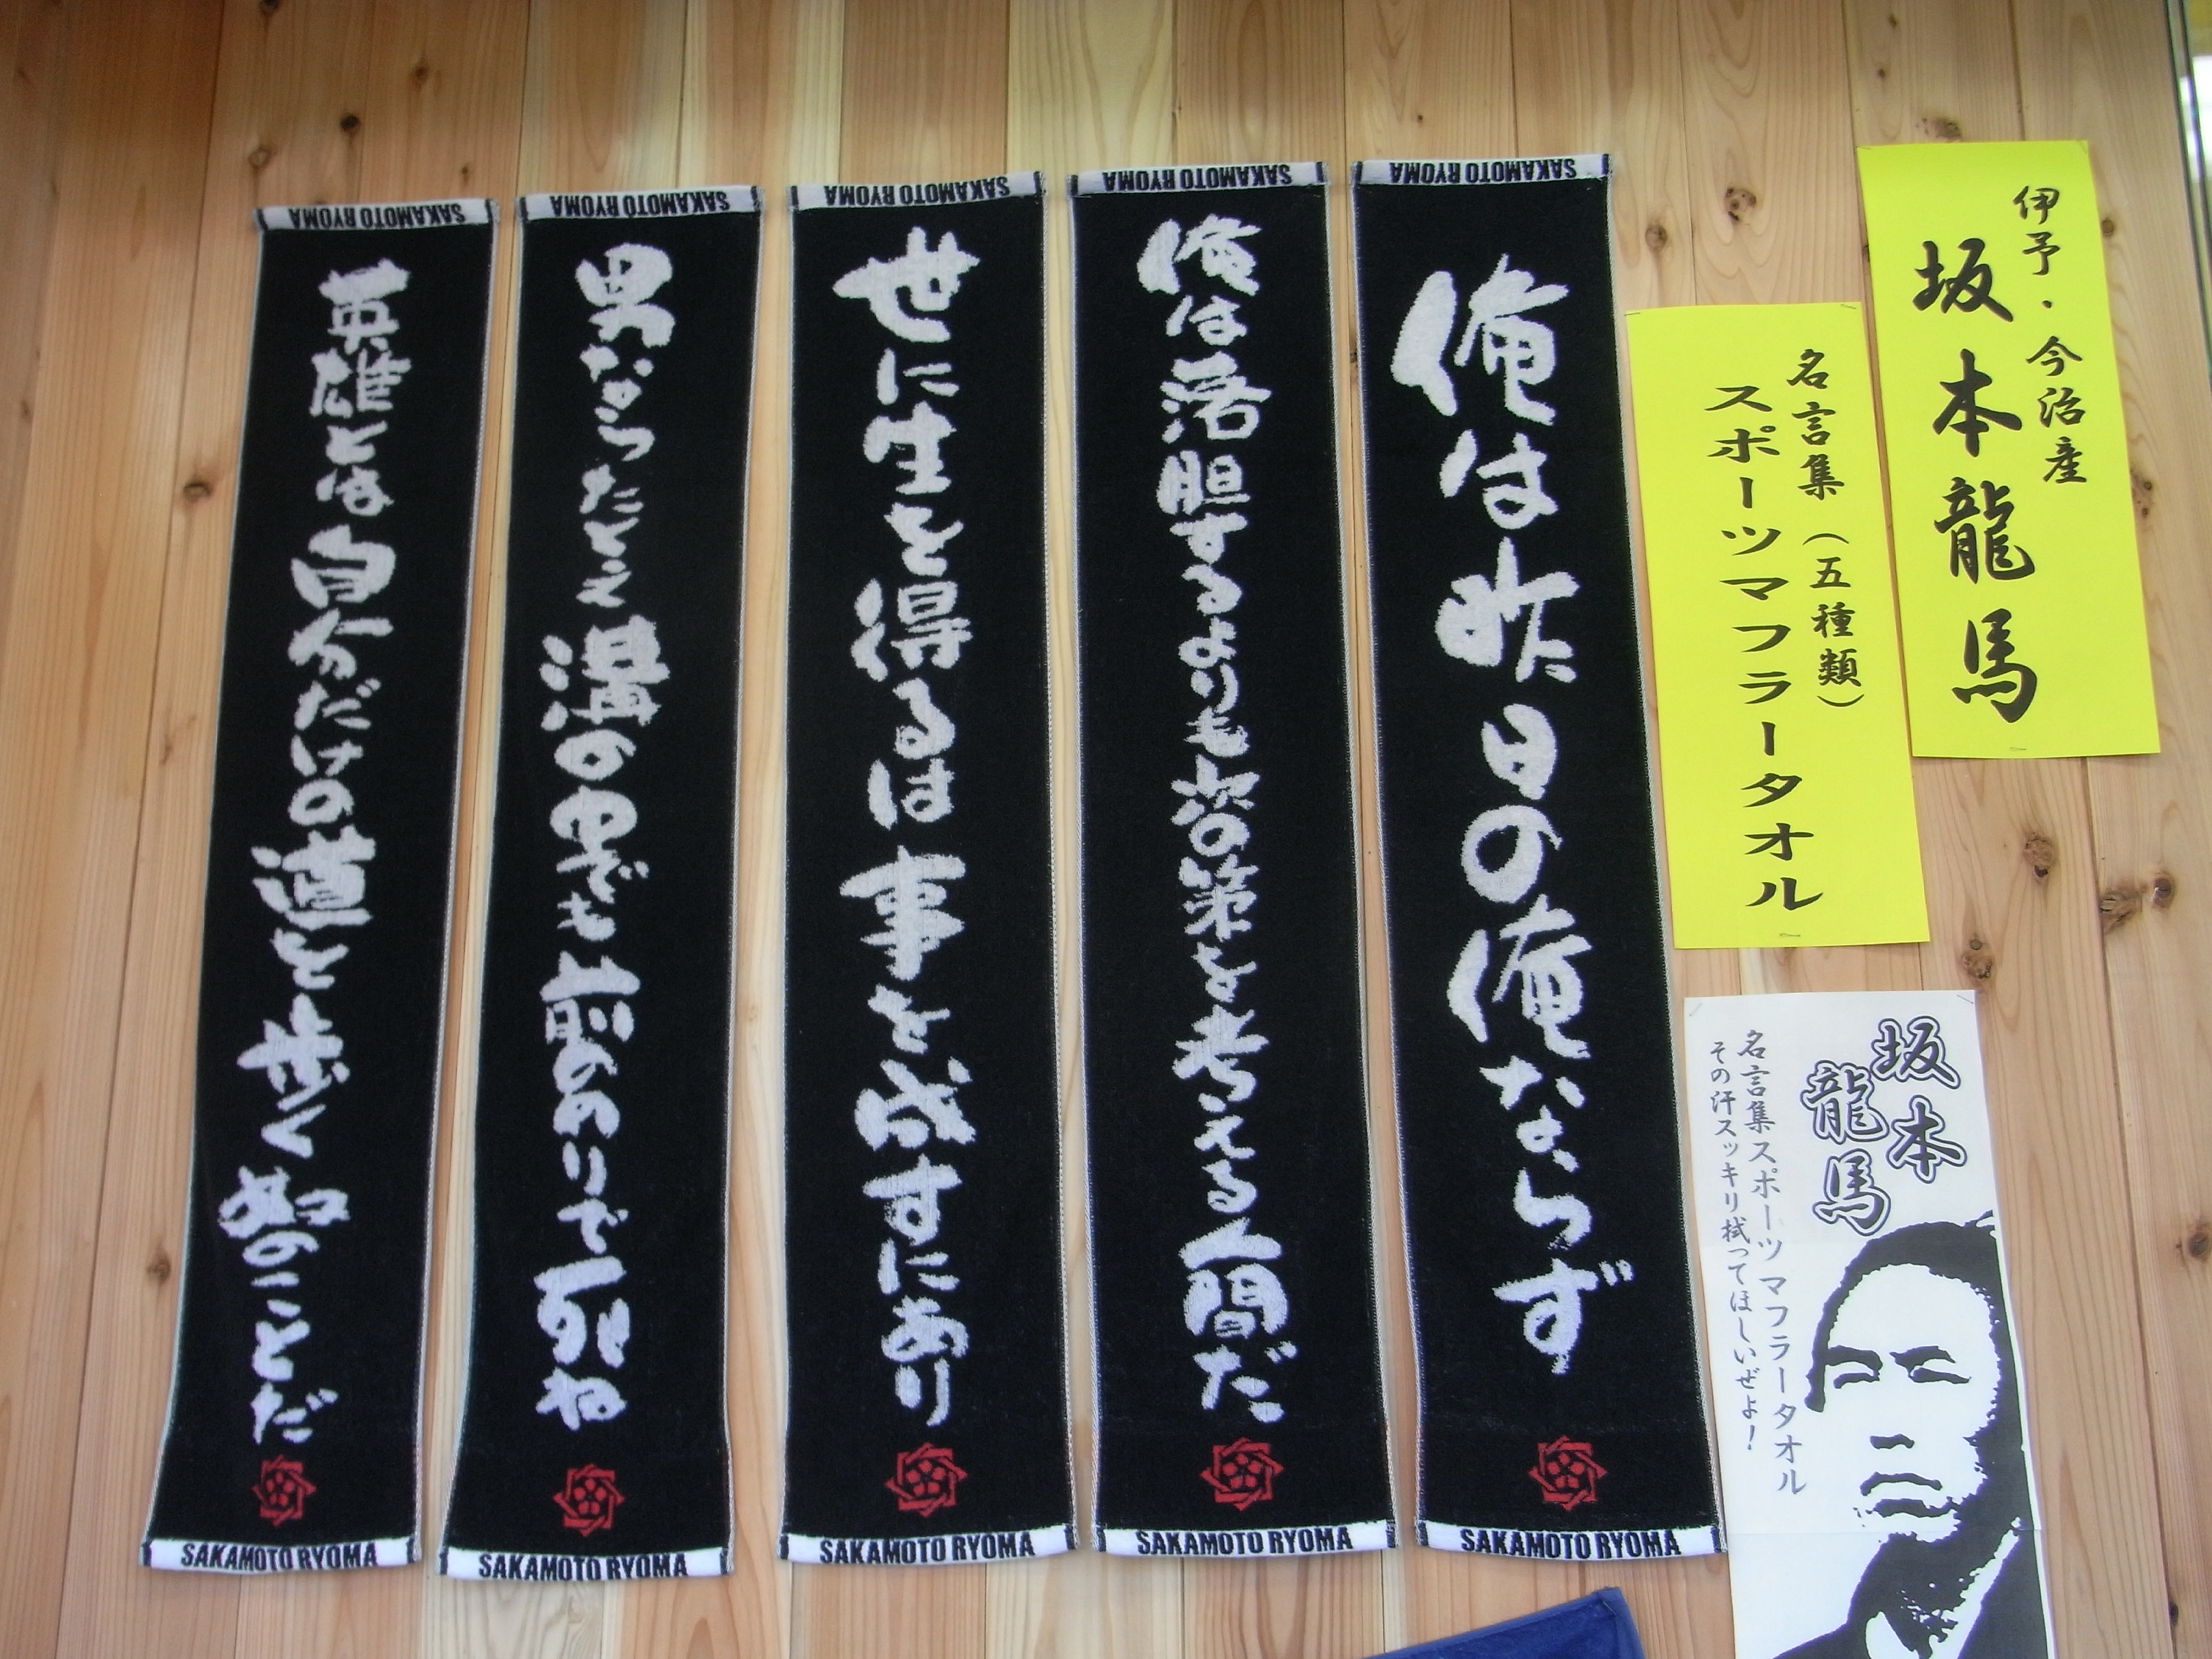 伊予・今治産
坂本龍馬
名言集（五種類）
スポーツマフラータオル
SAKAMOTO RYOMA
俺は昨日の俺ならず
SAKAMOTO RYOMA
SAKAMOTO RYOMA
俺は落胆するよりも次の策を考える人間だ
SAKAMOTO RYOMA
SAKAMOTO RYOMA
世に生を得るは事を成すにあり
SAKAMOTO RYOMA
SAKAMOTO RYOMA
男ならたとえ溝の中でも前のめりで死ね
SAKAMOTO RYOMA
SAKAMOTO RYOMA
英雄とは自分だけの道を歩くやつのことだ
SAKAMOTO RYOMA
坂本
龍馬
名言集スポーツマフラータオル
その汗スッキリ拭ってほしいぜよ！